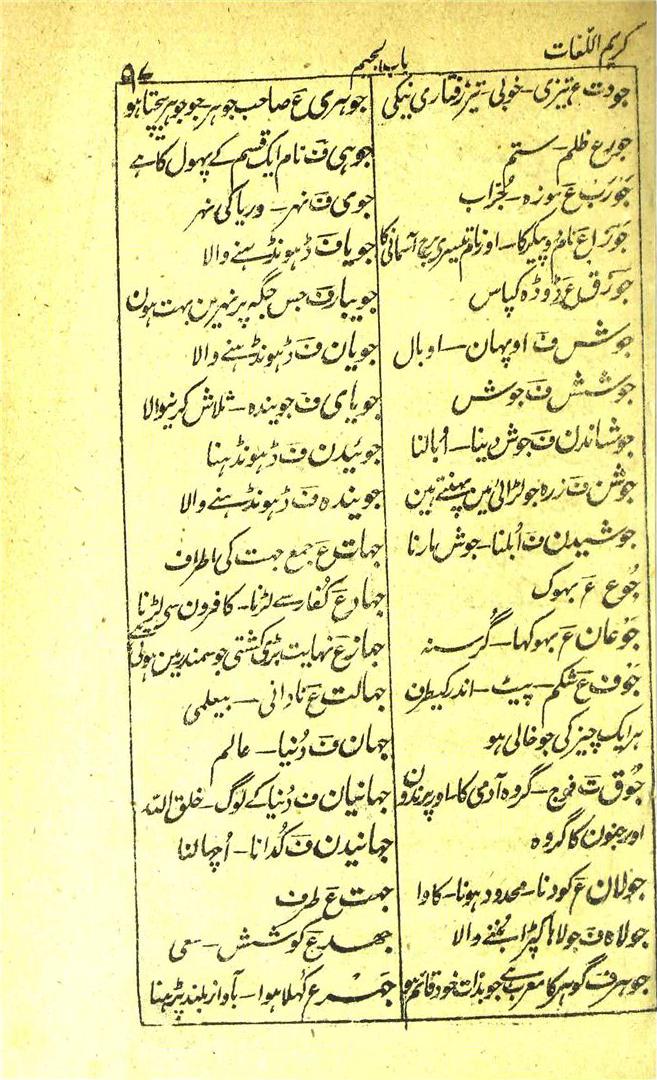 کریم اللغات
باب الجیم
۹۷
جودت ع تیزی - خوبی - تیز رفتاری نیکی
جور ع ظلم - ستم
جورب ع موزہ - جُراب
ع نام دو پیکر کا - اور نام تیسری برج آسمانی کا
جوزق ع ڈوڈہ کپاس
جوشش ف اوپہان - اوبال
جوشش ف جوش
جوشاندن ف جوش دینا - اُبالنا
جوشن ف زرہ جو لڑائی مین پہنتے ہین
جوشیدن ف اُبلنا - جوش مارنا
جُوع ع بہوک
جَوعان ع بہوکھا - گُرسنہ
جَوف ع شکم - پیٹ - اندر کیطرف
ہر ایک چیز کی جو خالی ہو
جُوق ت فوج - گروہ آدمی کا - اور پرندون
اور جنون کا گروہ
جولان ع کودنا - محدود ہونا - کاوا
جولاہ ف جولاہا کپڑا بُننے والا
جوہر ف گوہر کا معرب ہے جو بذات خود قائم ہو
جوہری ع صاحب جوہر - جو جوہر بیچتا ہو
جوہی ف نام ایک قسم کے پہول کا ہے
جوی ف نہر - دریا کی نہر
جویا ف ڈہونڈہنے والا
جویبار ف جس جگہ پر نہرین بہت ہون
جویان ف ڈہونڈہنے والا
جویای ف جویندہ - تلاش کرنیوالا
جوئیدن ف ڈہونڈہنا
جویندہ ف ڈہونڈہنے والا
جہات ع جمع جہت کی اطراف
جہاد ع کُفار سے لڑنا - کافرون سی لڑنا
جہاز ع نہایت بڑی کشتی جو سمندر مین ہوتی ہے
جہالت ع نادانی - بیعلمی
جہان ف دُنیا - عالم
جہانیان ف دُنیا کے لوگ - خلق اللہ
جہانیدن ف کُدانا - اُچہالنا
جہت ع طرف
جہد ع کوشش - سعی
جہر ع کُہلا ہوا - بآواز بلند پڑہنا